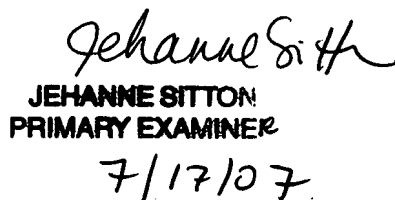 Jehanne Sitton
JEHANNE SITTON
PRIMARY EXAMINER
7/17/07